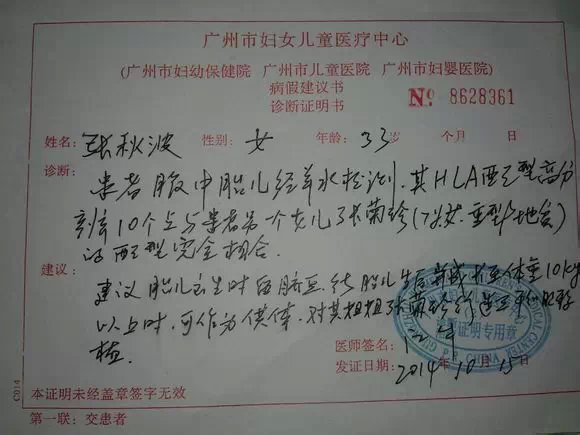 广州市妇女儿童医疗中心
(广州市妇幼保健院 广州市儿童医院 广州市妇婴医院)
病假建议书
诊断证明书
№ 8628361
姓名: 张秋波 性别: 女 年龄: 33岁 个月 日
诊断: 患者腹中胎儿经羊水检测,其HLA配型高分
辨10个点与患者另一个女儿张菊珍(7岁,女,重型地贫)
的配型完全相合.
建议: 建议胎儿出生时留脐血,待胎儿生后成长至体重10kg
以上时,可作为供体,对其姐姐张菊珍进行移
植.
医师签名:
证明专用章
P.R. CHINA
发证日期: 2014年10月15日
本证明未经盖章签字无效
第一联: 交患者
C014